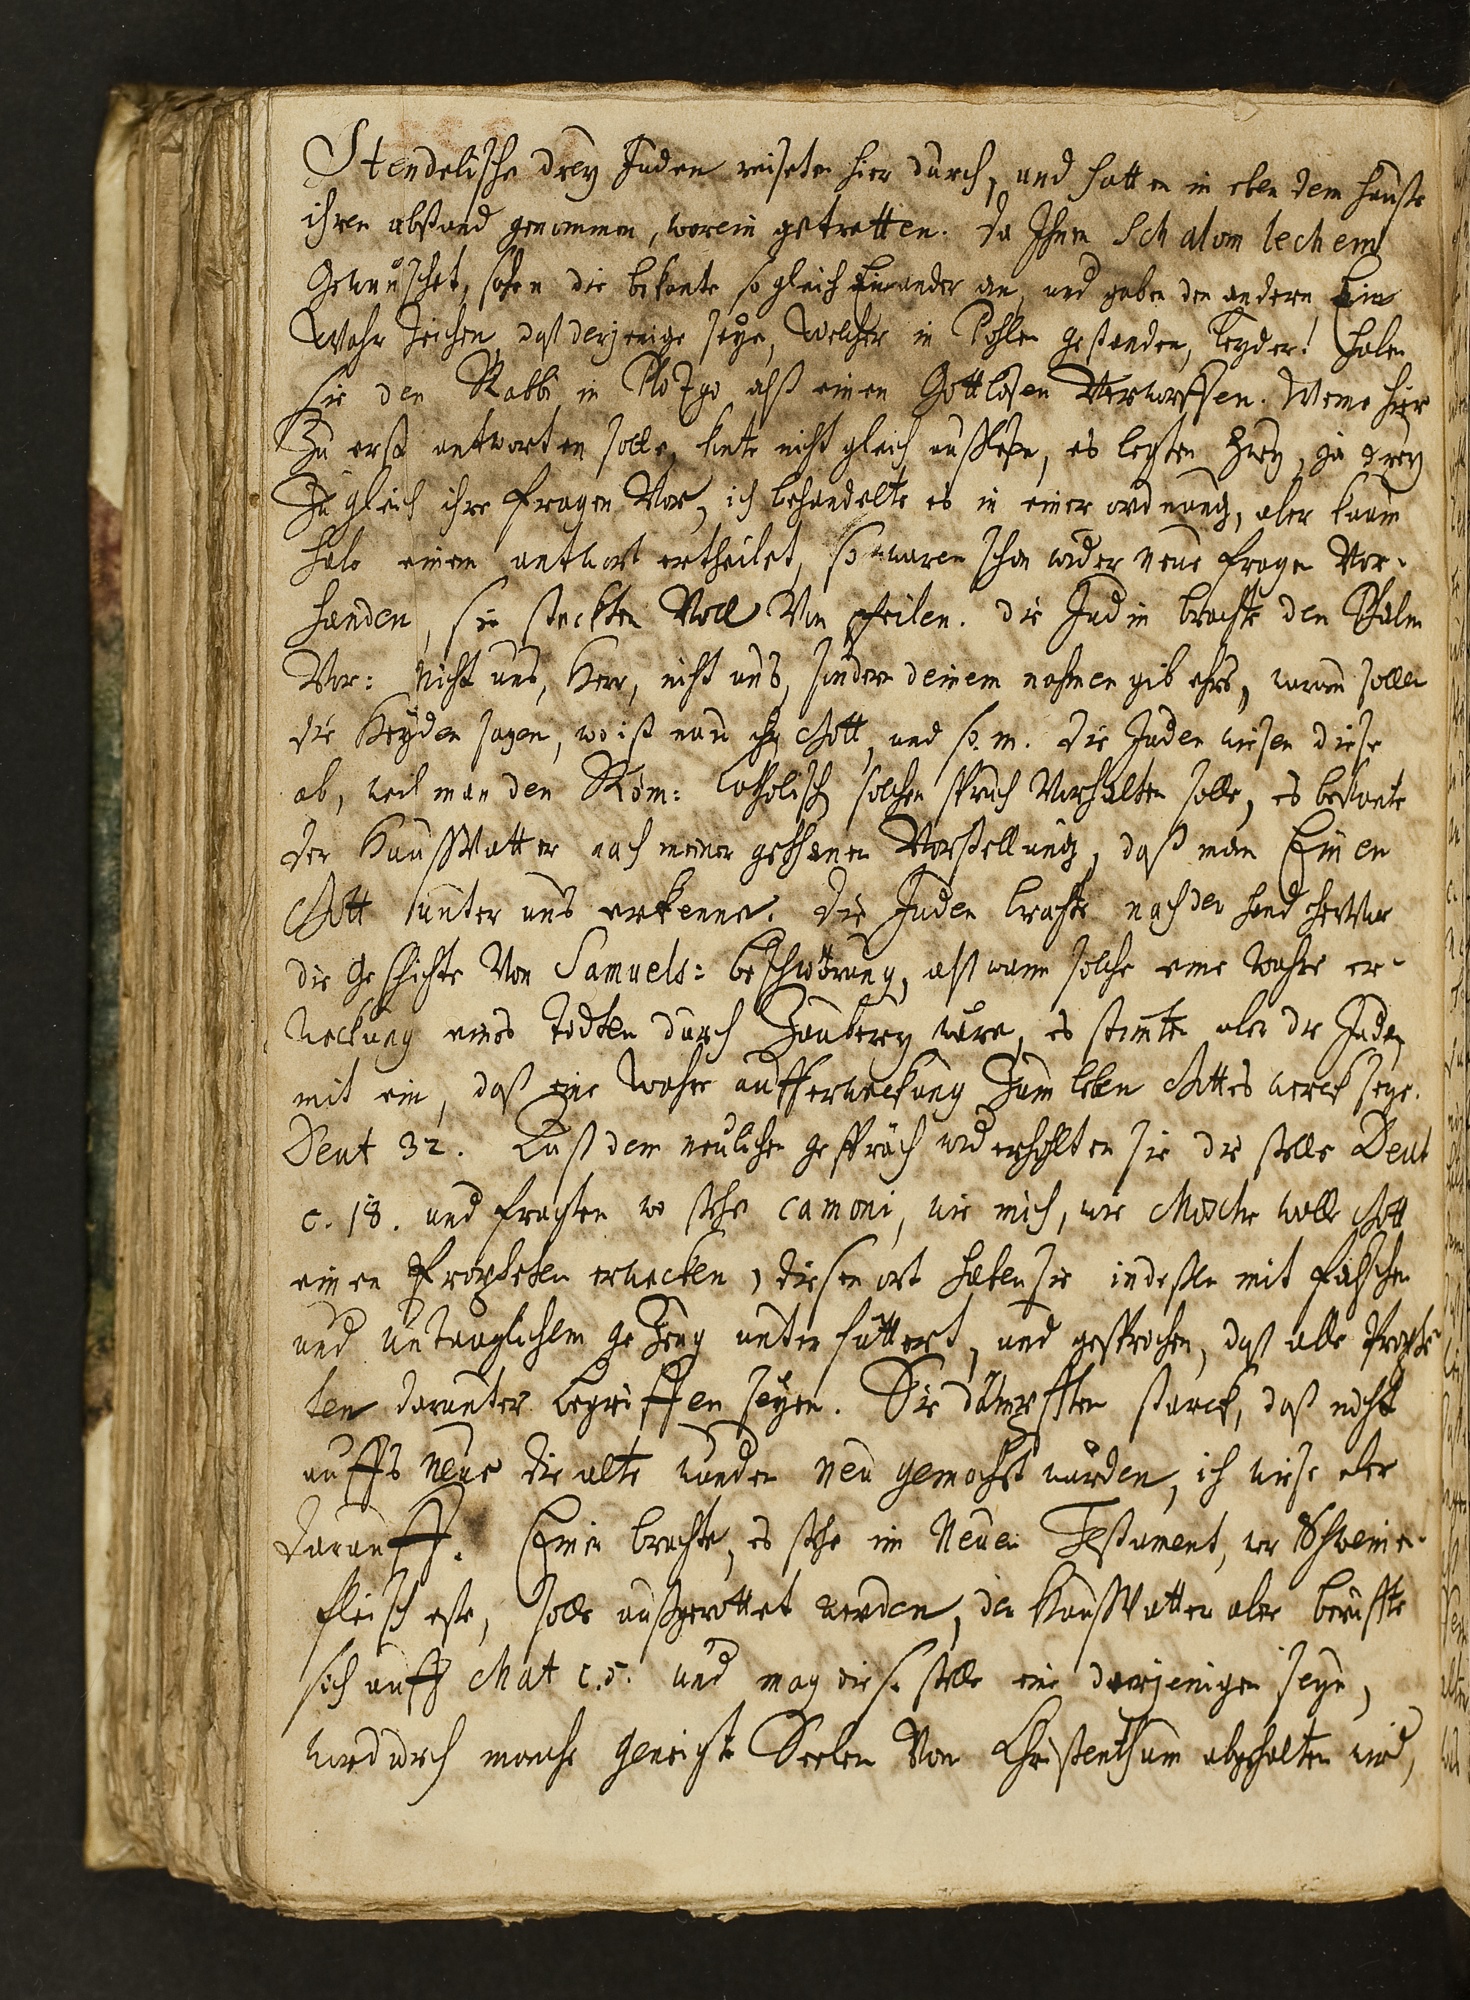 Stendelische drey Juden reiseten hier durch, und hatten in eben dem Hauße
ihren abstand genommen, worein getretten. Da Ihnen Schalom lechem
Gewünschet, sahen die bekante so gleich Einander an, und gaben den andern Ein
Wahr Zeichen, daß derjenige seye, Welcher in Pohlen gestanden, Leyder! habe
sie den Rabbi in als einen Gottlosen Verworffen. Weme hier
Zu erst antworten solle, kunte nicht gleich außlesen, es legten Zwey, ja drey
Zu gleich ihre fragen Vor, ich behandelte es in einer ordnung, aber kaum
habe einem antwort ertheilet, so waren schon wider neue frage Vor-
handen, sie steckten Voll Von pfeilen. Die Judin brachte den Psalm
Vor: Nicht uns, Herr, nicht uns, sondern deinem nahmen gib ehre, warum sollen
die Heyden sagen, wo ist nun ihr Gott, und s. m. Die Juden wiesen diese
ab, weil man den Röm: Catholisch solchen spruch Vorhalten solle, es bekante
der HaußVatter nach meiner gethanen Vorstellung, daß man Einen
Gott unter uns erkenne. Die Juden brachte nach der hand herVor
die Geschichte Von Samuels: beschwörung, alß wann solche eine wahre er-
weckung eines todten durch Zauberey wäre, es stimten aber die Juden
mit ein, daß eine wahre aufferweckung Zum leben Gottes werck seye.
Deut 32. Auß dem neulichen gespräch widerhohlten sie die stelle Deut
c. 18. und fragten wo stehe camoni, wie mich, wie Mosche wolle Gott
einen Propheten erwecken, diesen ort haben sie indeßen mit falschen
und untauglichem geZeug unterfüttert, und gesprochen, daß alle Prophe
ten darunter begriffen seyen. Sie dämpfften starck, daß nicht
auffs neue die alte wunden neu gemacht würden, ich wiese aber
darauff. Einer brachte, es stehe im Neuen Testament, wer Schweine-
fleisch eße, solle außgerottet werden, der HaußVatter aber beruffte
sich auff Mat c. 5. und mag diese stelle eine derjenigen seyn,
wordurch manche geneigte Seelen Von Christenthum abgehalten wird,